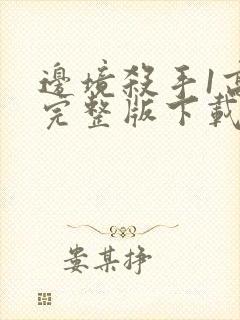 邊境殺手1高
完整版下載
娄某挣